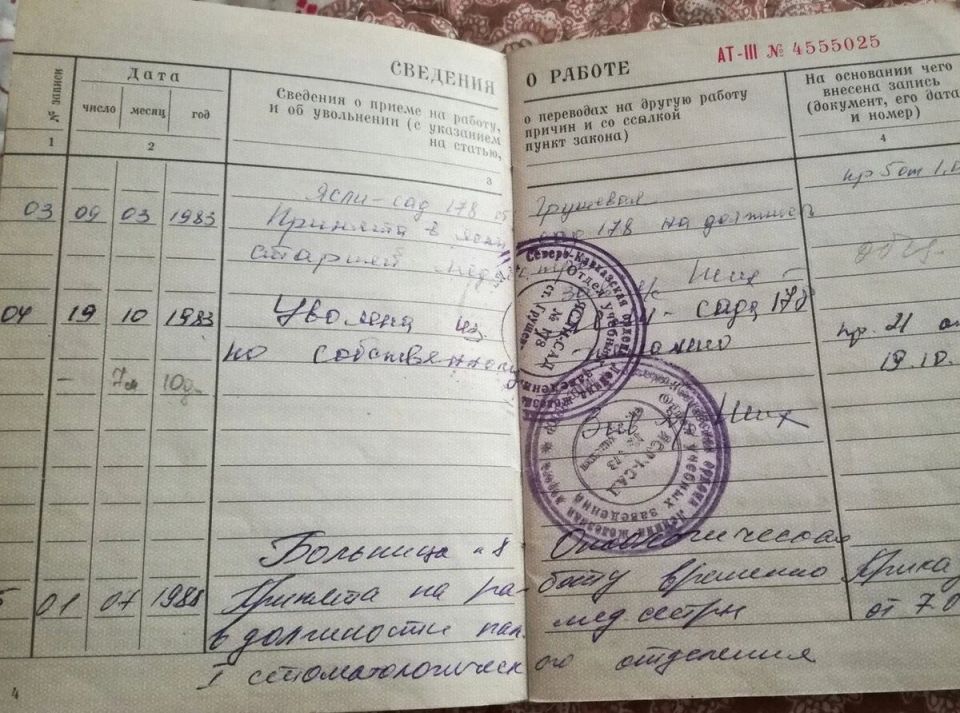 СВЕДЕНИЯ О РАБОТЕ
АТ-III № 4555025
№ записи
Дата
число месяц год
Сведения о приеме на работу, о переводах на другую работу
и об увольнении (с указанием причин и со ссылкой
на статью, пункт закона)
На основании чего
внесена запись
(документ, его дата
и номер)
1 2 3 4
Ясли-сад 178 Грушевая
пр 5 от 1.0
03 09 03 1983 Принята в ясли сад 178 на должность
старшей мед
04 19 10 1983 Уволена из сада 178
пр. 21 от
по собственному
19.10.
– 7м 10д
Северо-Кавказская ордена Ленина железная дорога
Отдел учебных заведений
ЯСЛИ-САД
№ 178
ст. Грушев
ЯСЛИ-САД
учебных заведений
Больница "8 Онкологическая
01 07 1988 Принята на работу временно
Приказ
в должности мед сестры
от 7.0
I стоматологического отделения
4